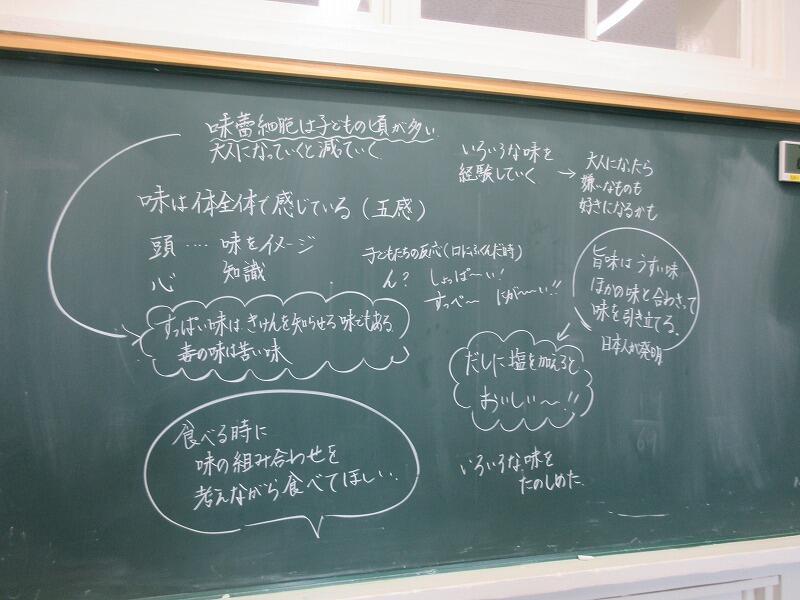 味蕾細胞は子どもの頃が多い
大人になっていくと減っていく
いろいろな味を
経験していく
→ 大人になったら
嫌いなものも
好きになるかも
味は体全体で感じている（五感）
頭‥‥味をイメージ
心　知識
子どもたちの反応（口にふくんだ時）
ん？ しょっぱ〜い！
すっぺ〜 にが〜い!!
旨味はうすい味
ほかの味と合わさって
味を引き立てる。
日本人が発明
すっぱい味は きけんを知らせる味でもある
毒の味は苦い味
だしに塩を加えると
おいしい〜!!
食べる時に
味の組み合わせを
考えながら食べてほしい。
いろいろな味を
たのしめた